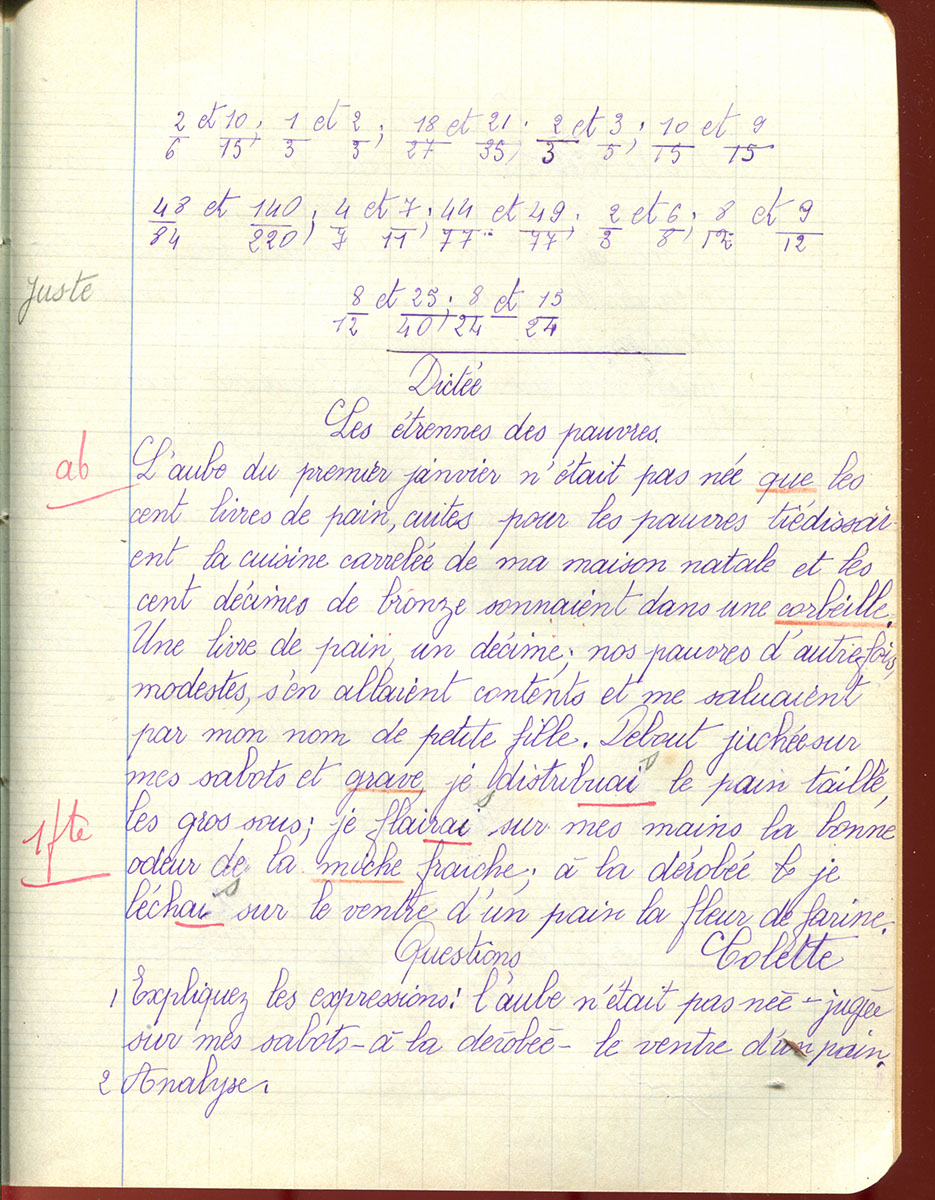 2/6 et 10/15; 1/3 et 2/3; 18/27 et 21/35; 2/3 et 3/5; 10/15 et 9/15
48/84 et 140/220; 4/7 et 7/11; 44/77 et 49/77; 2/3 et 6/8; 8/12 et 9/12
juste
8/12 et 25/40; 8/24 et 15/24
Dictée
Les étrennes des pauvres.
ab
L'aube du premier janvier n'était pas née que les
cent livres de pain, cuites pour les pauvres tiédissai-
ent la cuisine carrelée de ma maison natale et les
cent décimes de bronze sonnaient dans une corbeille.
Une livre de pain, un décime; nos pauvres d'autrefois,
modestes, s'en allaient contents et me saluaient
par mon nom de petite fille. Debout juchée sur
mes sabots et grave, je distribuais le pain taillé,
1 fte
les gros sous; je flairais sur mes mains la bonne
odeur de la miche fraiche; à la dérobée je
léchais sur le ventre d'un pain la fleur de farine.
Questions Colette
1 Expliquez les expressions: l'aube n'était pas née - jugée
sur mes sabots - à la dérobée - le ventre d'un pain.
2 Analyse.